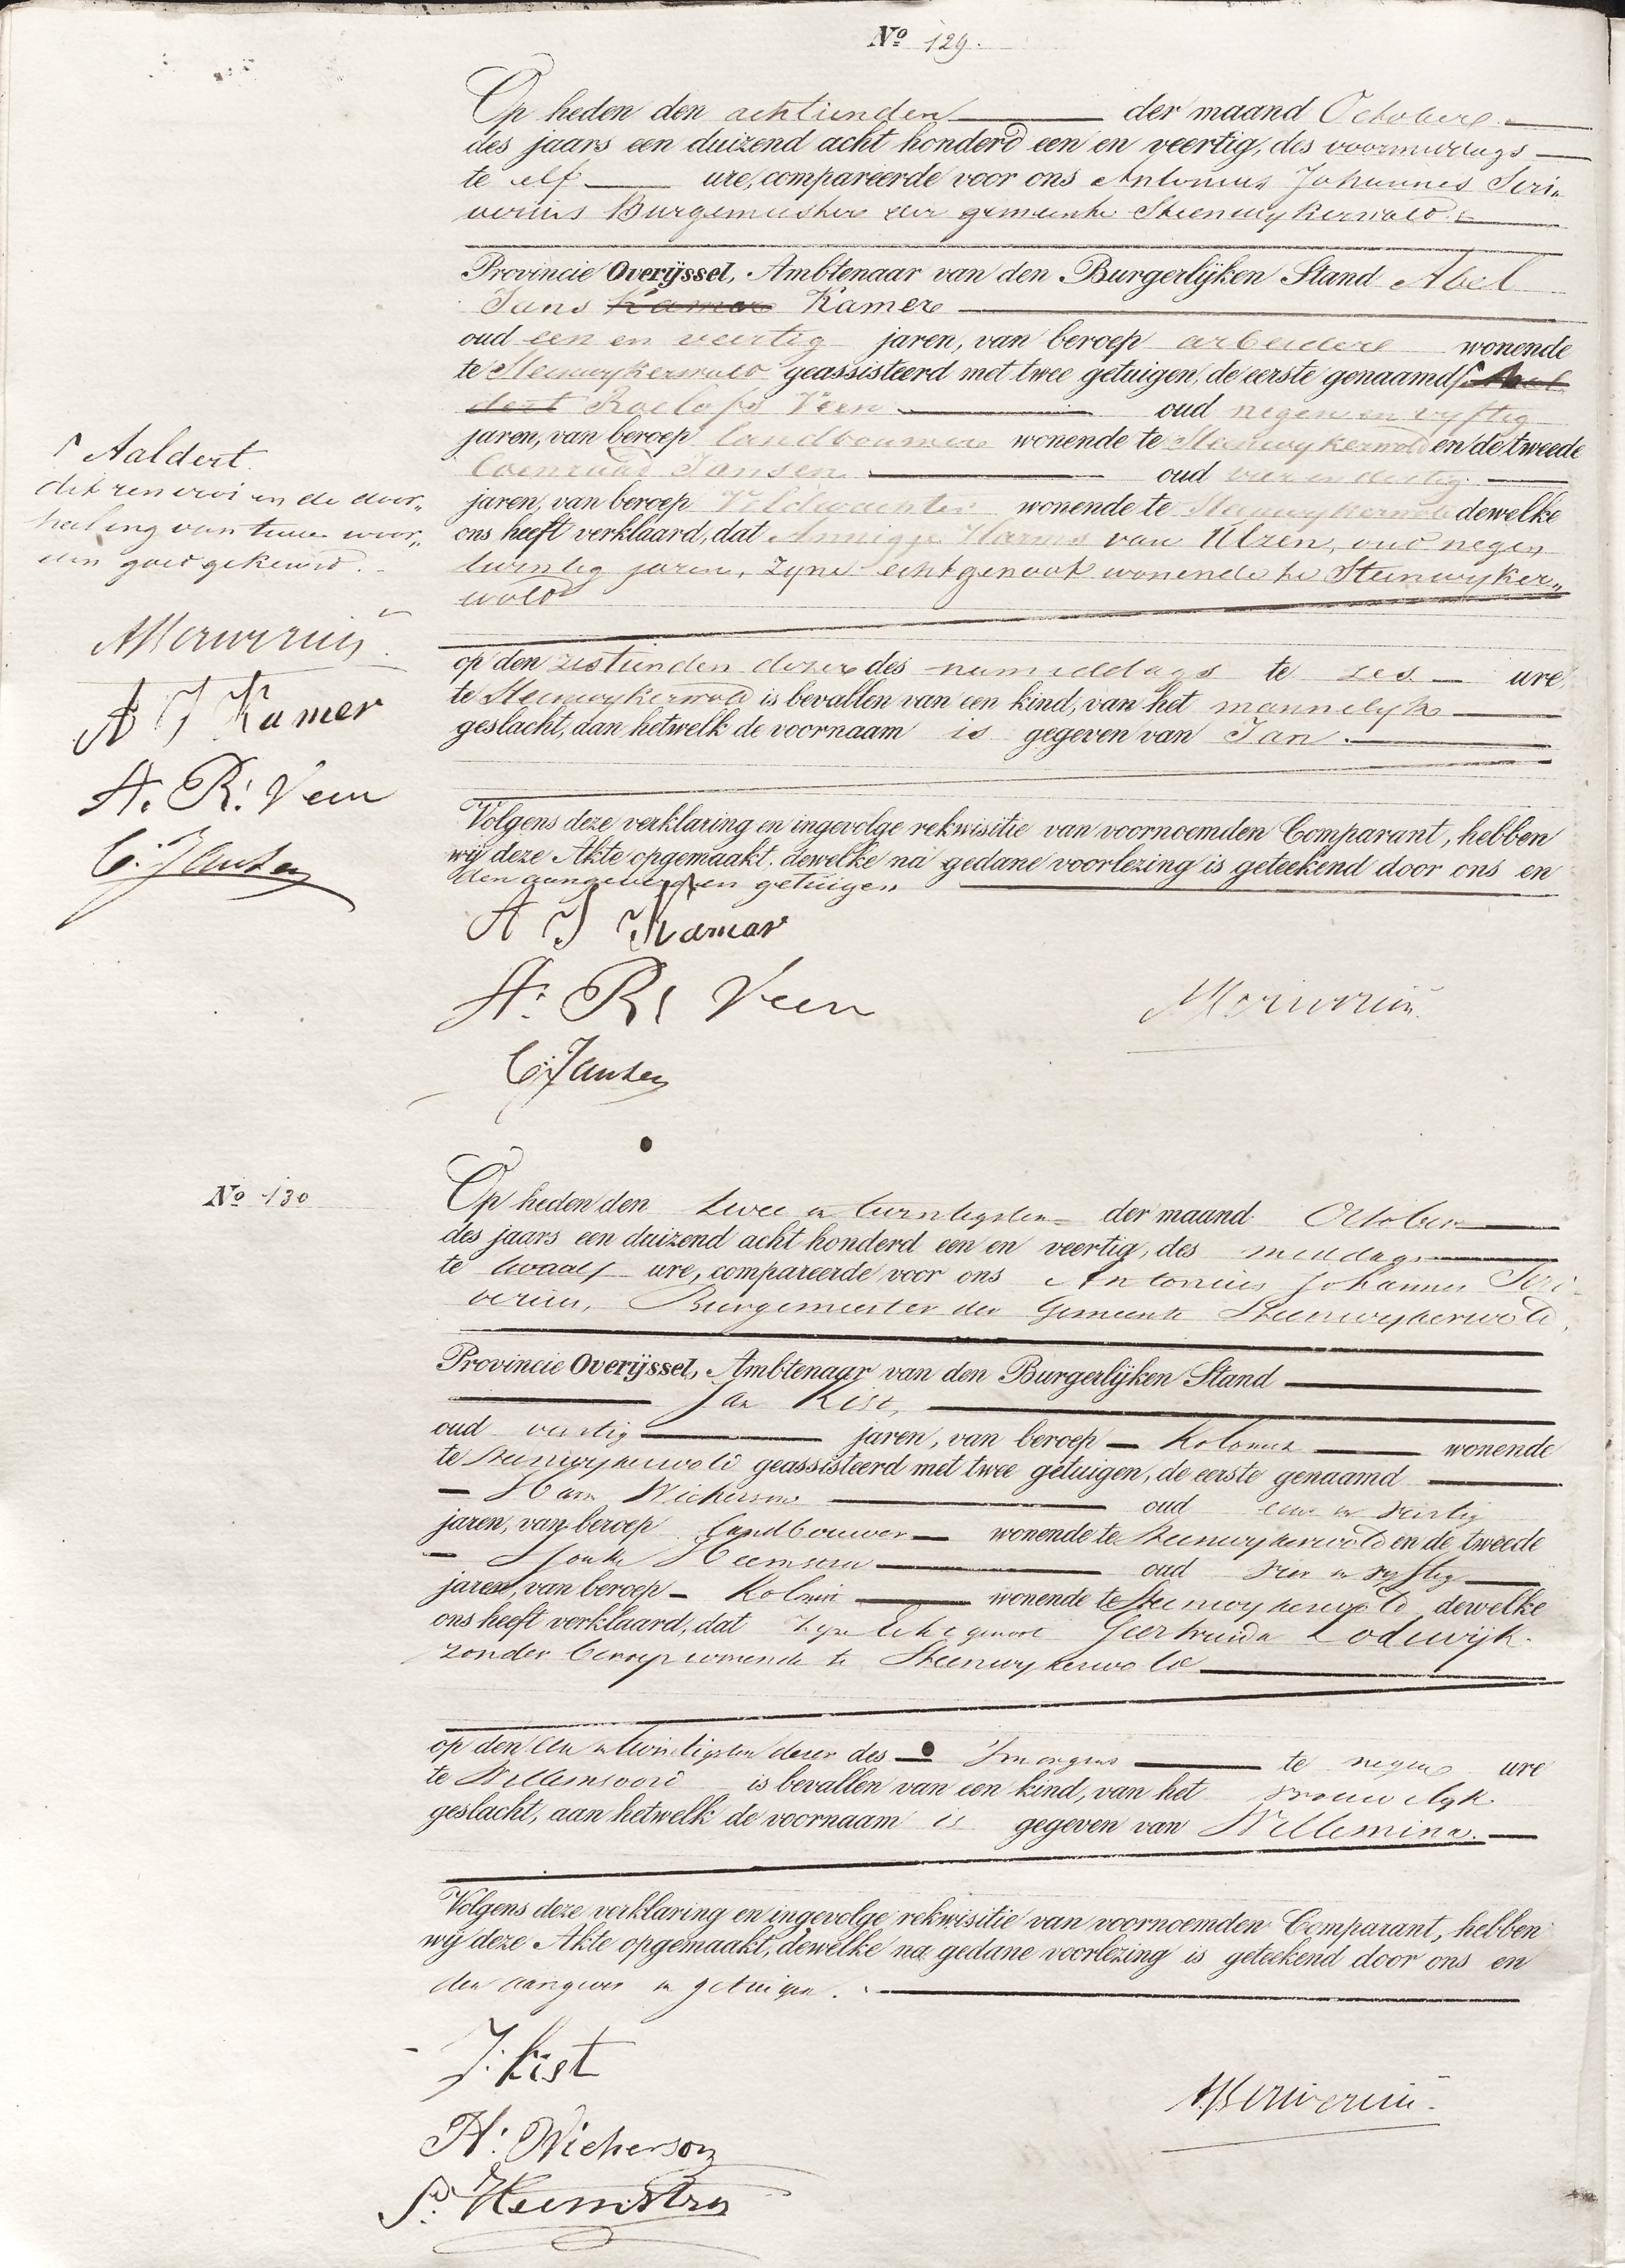 No 129.
Op heden den achtienden der maand October
des jaars een duizend acht honderd een en veertig, des voormiddags
te elf ure, compareerde voor ons Antonius Johannes Scri„
verius Burgemeester der gemeente Steenwykerwold
Provincie Overijssel, Ambtenaar van den Burgerlijken Stand Abel
Jans Kamer Kamer
oud een en veertig jaren, van beroep arbeider wonende
te Steenwykerwold geassisteerd met twee getuigen, de eerste genaamd Aal
dert Roelofs Veen oud negen en vyftig
jaren, van beroep landbouwer wonende te Steenwykerwold en de tweede
Coenraad Jansen oud vier en dertig
jaren, van beroep Veldwachter wonende te Steenwykerwold dewelke
ons heeft verklaard, dat Annigje Harms van Ulzen, oud negen
twintig jaren, zyne echtgenoot wonende te Steenwyker„
wold
op den zestienden dezer des namiddags te zes ure
te Steenwykerwold is bevallen van een kind, van het mannelyk
geslacht, aan hetwelk de voornaam is gegeven van Jan.
Volgens deze verklaring en ingevolge rekwisitie van voornoemden Comparant, hebben
wij deze Akte opgemaakt, dewelke na gedane voorlezing is geteekend door ons en
den aangever en getuigen
A J Kamer
A. R. Veen
C. Jansen
AJScriverius
Aaldert
dit renvooi en de door„
haling van twee woor„
den goedgekeurd.
AJScriverius
A J Kamer
A. R. Veen
C. Jansen
No 130
Op heden den twee en twintigsten der maand October
des jaars een duizend acht honderd een en veertig, des middags
te twaalf ure, compareerde voor ons Antonius Johannes Scri
verius, Burgemeester der Gemeente Steenwykerwold,
Provincie Overijssel, Ambtenaar van den Burgerlijken Stand
Jan Kist,
oud veertig jaren, van beroep Kolonist wonende
te Steenwykerwold geassisteerd met twee getuigen, de eerste genaamd
Harm Wicherson oud en veertig
jaren, van beroep landbouwer wonende te Steenwykerwold en de tweede
Heemstra oud vier en vyftig
jaren, van beroep Kolonist wonende te Steenwykerwold dewelke
ons heeft verklaard, dat zyne Echtgenoot Geertruida Lodewijk
zonder beroep wonende te Steenwykerwold
op den een en twintigsten dezer des smorgens te negen ure
te Willemsoord is bevallen van een kind, van het vrouwelyk
geslacht, aan hetwelk de voornaam is gegeven van Willemina.
Volgens deze verklaring en ingevolge rekwisitie van voornoemden Comparant, hebben
wij deze Akte opgemaakt, dewelke na gedane voorlezing is geteekend door ons en
den aangever en getuigen.
J. Kist
H. Wicherson
S. Heemstra
AJScriverius